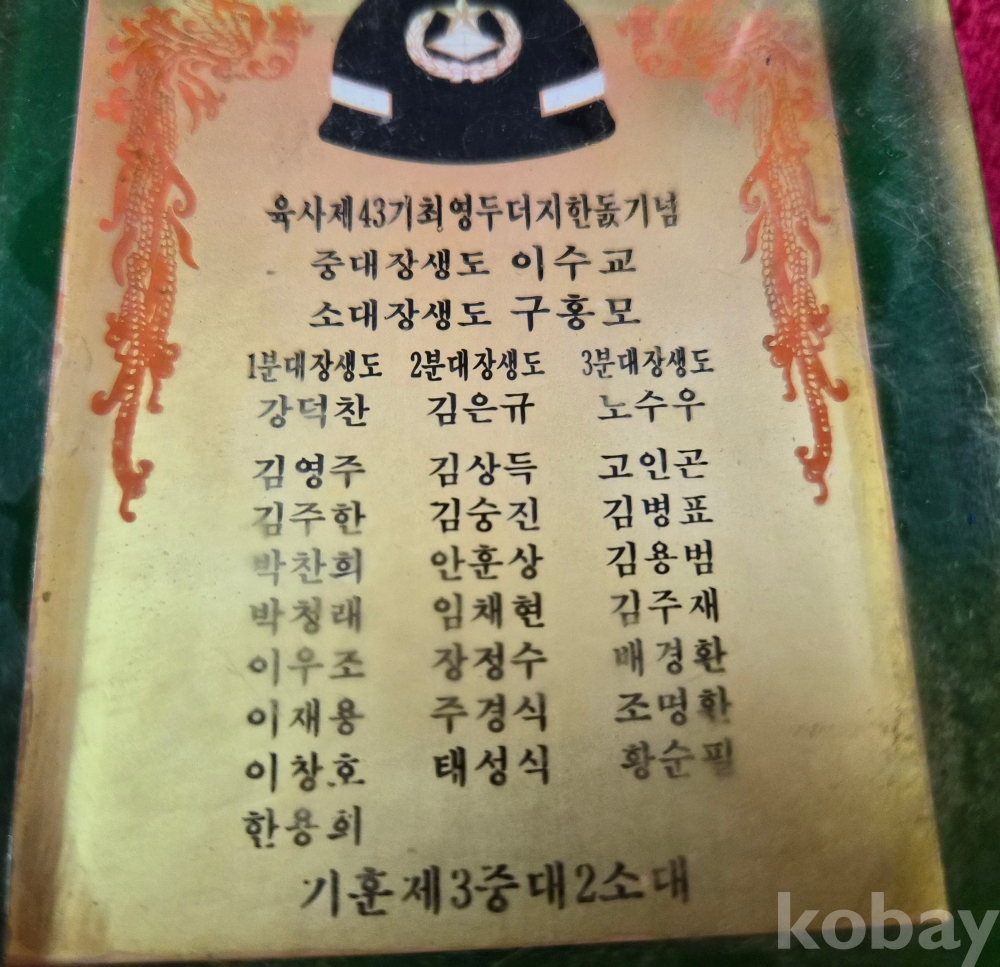 육사제43기최영두더지한돐기념
중대장생도 이수교
소대장생도 구홍모
1분대장생도 2분대장생도 3분대장생도
강덕찬 김은규 노수우
김영주 김상득 고인곤
김주한 김숭진 김병표
박찬희 안훈상 김용범
박청래 임채현 김주재
이우조 장정수 배경환
이재용 주경식 조명환
이창호 태성식 황순필
한용희
기훈제3중대2소대
kobay